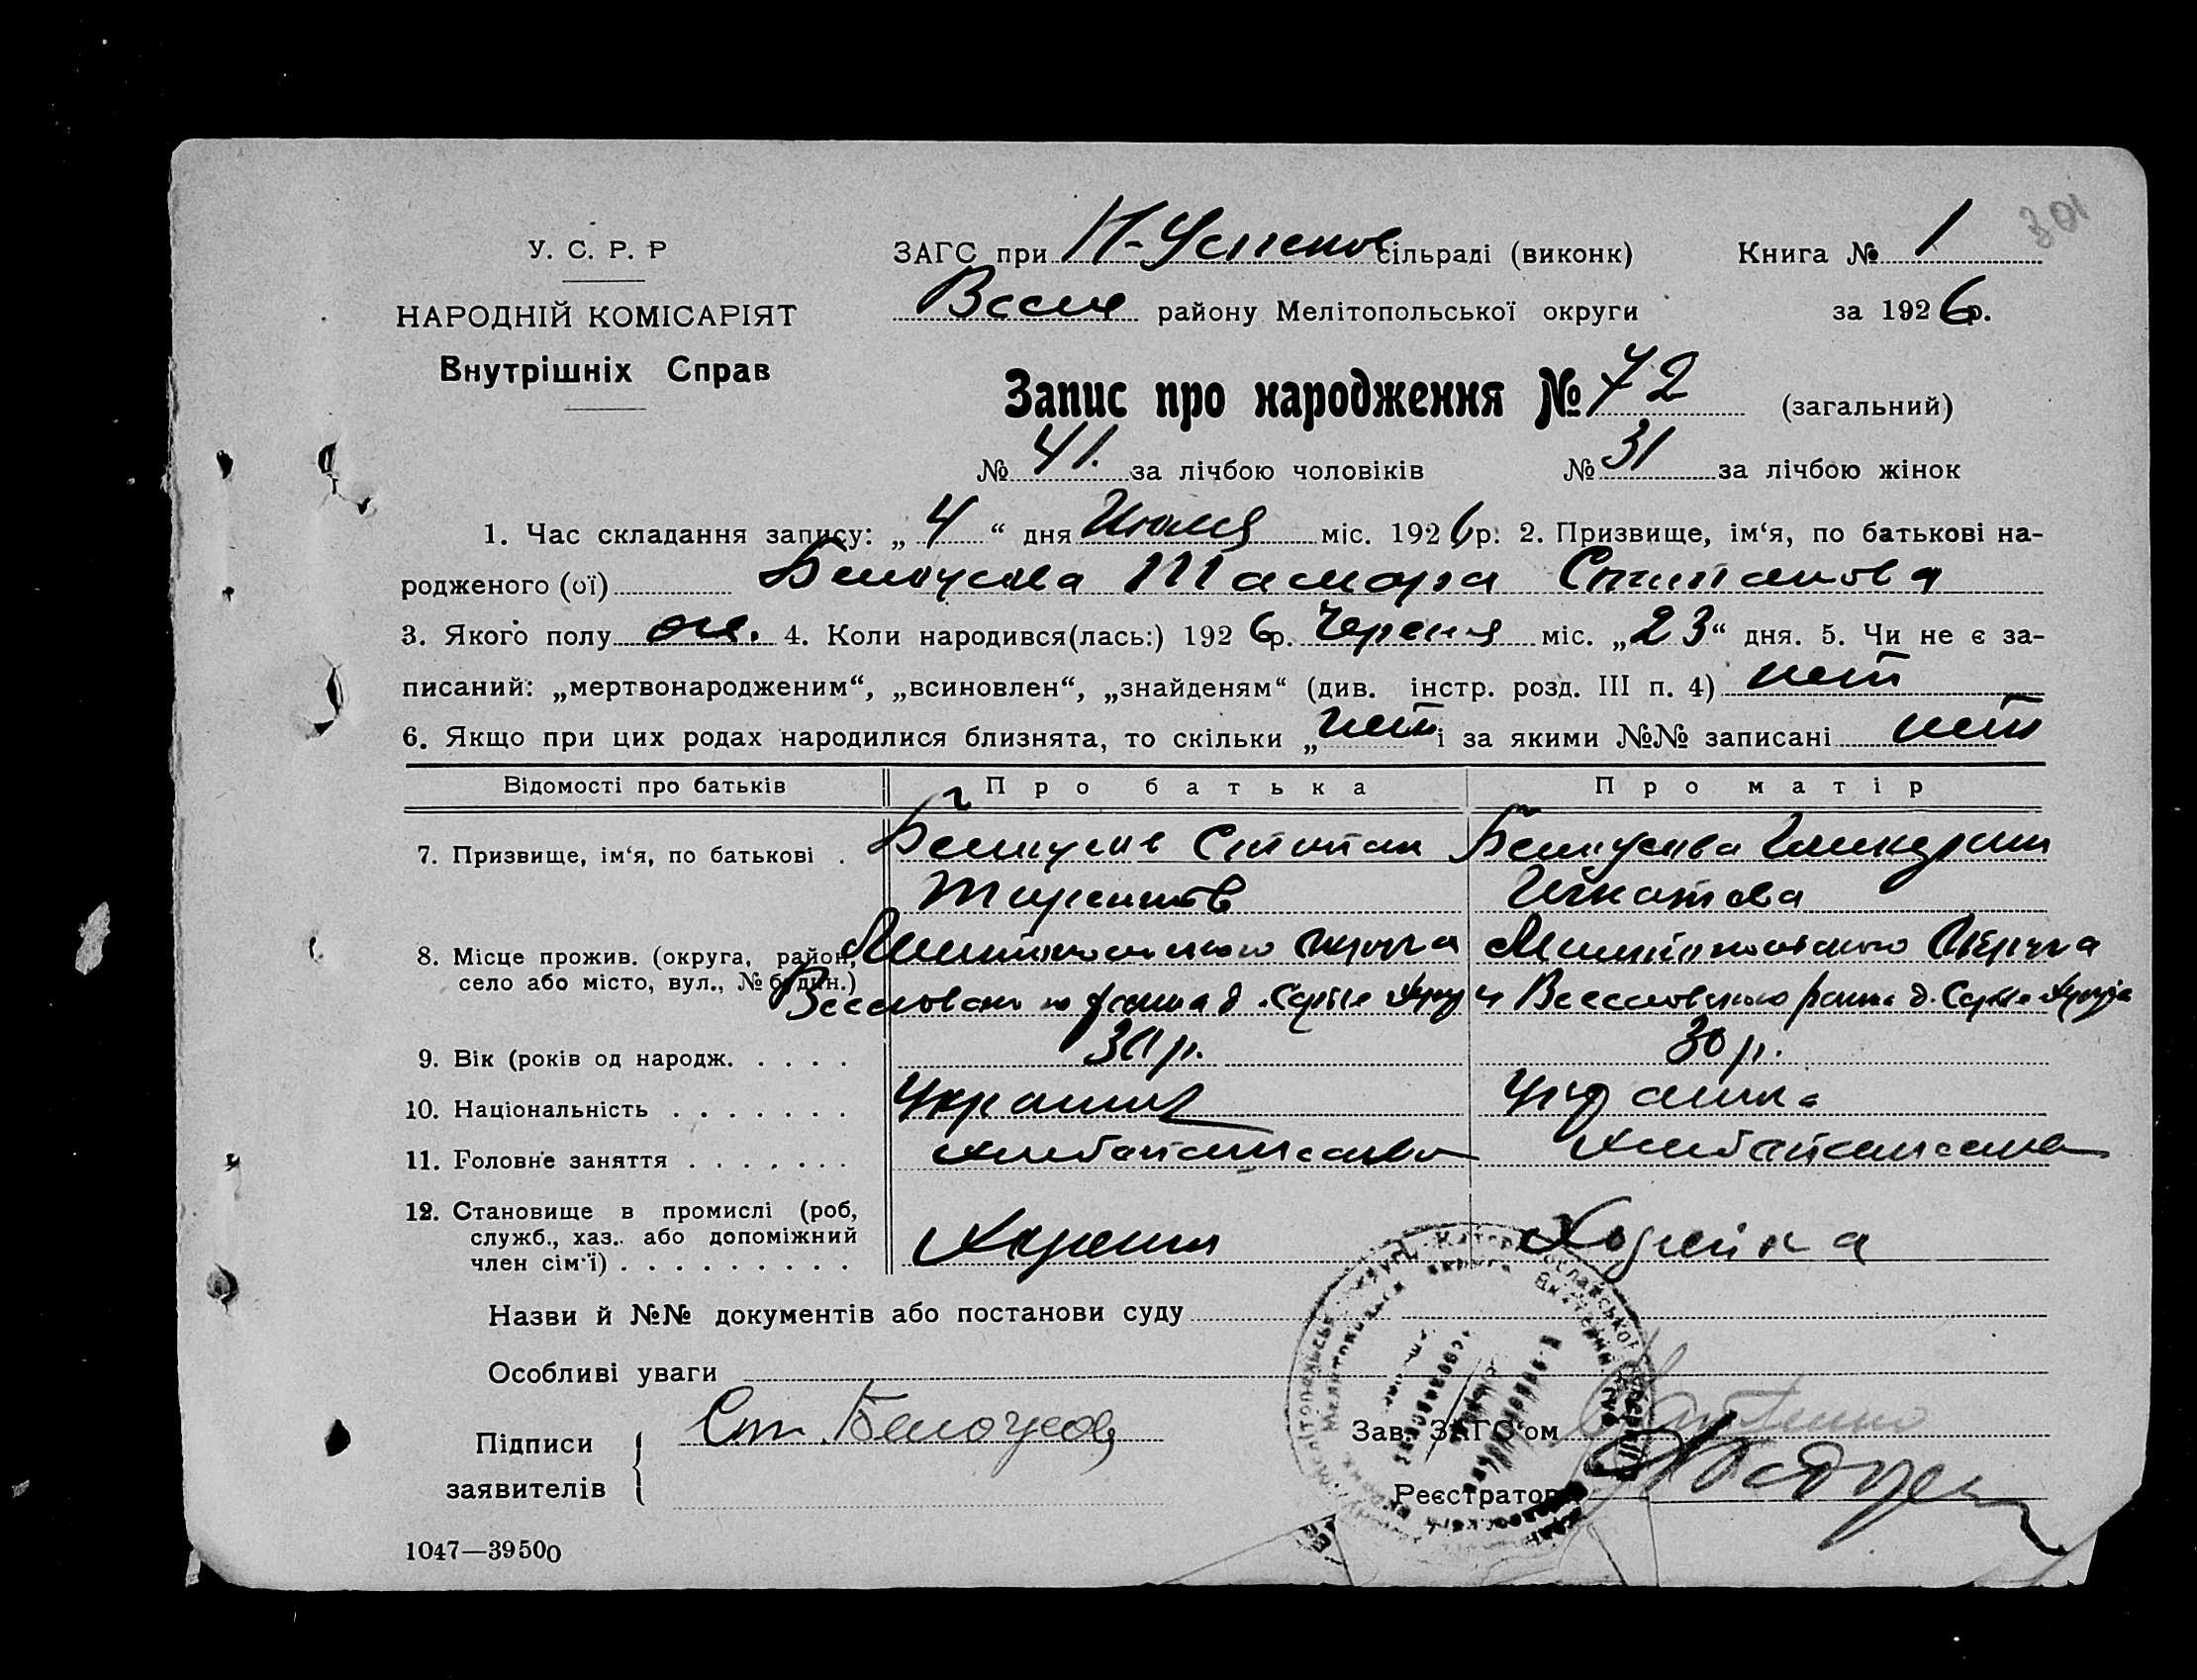 301
У. С. Р. Р
НАРОДНІЙ КОМІСАРІЯТ
Внутрішніх Справ
ЗАГС при Н-Успенов сільраді (виконк) Книга № 1
Весел району Мелітопольської округи за 1926р.
Запис про народження № 72 (загальний)
№ 41. за лічбою чоловіків № 31 за лічбою жінок
1. Час складання запису: „4“ дня Июля міс. 1926р: 2. Призвище, ім‘я, по батькові на-
родженого (ої) Белоусова Тамара Степанова
3. Якого полу жен. 4. Коли народився(лась:) 1926р. Червня міс. „23“ дня. 5. Чи не є за-
писаний: „мертвонародженим“, „всиновлен“, „знайденям“ (див. інстр. розд. III п. 4) нет
6. Якщо при цих родах народилися близнята, то скільки „нет і за якими №№ записані нет
Відомості про батьків Про батька Про матір
7. Призвище, ім‘я, по батькові . Белоусов Степан Белоусова
Игнатова
8. Місце прожив. (округа, район, Мелитопольского Округа Мелитопольского Округа
село або місто, вул., № будин.) Веселовского района д. Веселовского района д.
9. Вік (років од народж. . . . . 30 р. 30 р.
10. Національність . . . . . . . Украинец Украинка
11. Головне заняття . . . . . . . хлебопашество хлебопашество
12. Становище в промислі (роб,
служб., хаз.. або допоміжний
член сім‘ї) . . . . . . . . .
Назви й №№ документів або постанови суду
Особливі уваги
Підписи Ст. Белоусов Зав. ЗАГС‘ом
заявителів Реєстратор
1047—39500